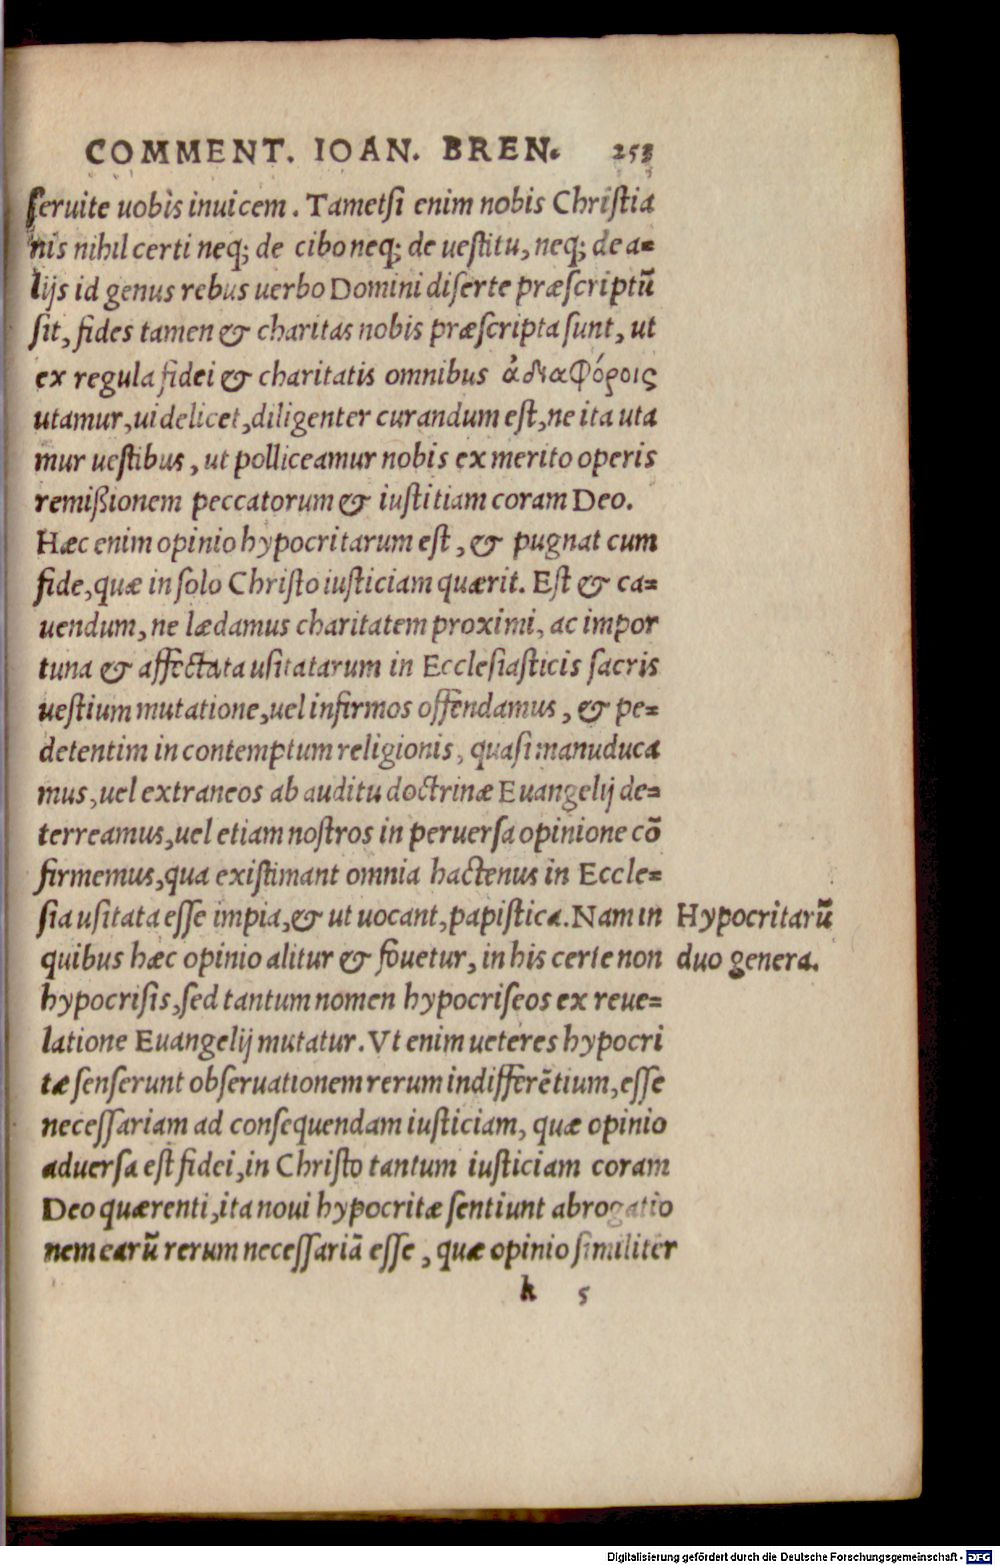 COMMENT. IOAN. BREN. 253
ſeruite uobis inuicem. Tametſi enim nobis Chriſtia
nis nihil certi neq; de cibo neq; de ueſtitu, neq; de a=
lijs id genus rebus uerbo Domini diſerte præſcriptũ
ſit, fides tamen & charitas nobis præſcripta ſunt, ut
ex regula fidei & charitatis omnibus ἀδιαφόροις
utamur, uidelicet, diligenter curandum eſt, ne ita uta
mur ueſtibus, ut polliceamur nobis ex merito operis
remißionem peccatorum & iuſtitiam coram Deo.
Hæc enim opinio hypocritarum eſt, & pugnat cum
fide, quæ in ſolo Chriſto iuſticiam quærit. Eſt & ca=
uendum, ne lædamus charitatem proximi, ac impor
tuna & affectata uſitatarum in Eccleſiaſticis ſacris
ueſtium mutatione, uel infirmos offendamus, & pe=
detentim in contemptum religionis, quaſi manuduca
mus, uel extraneos ab auditu doctrinæ Euangelij de=
terreamus, uel etiam noſtros in peruerſa opinione cõ
firmemus, qua exiſtimant omnia hactenus in Eccle=
ſia uſitata eſſe impia, & ut uocant, papiſtica. Nam in
quibus hæc opinio alitur & fouetur, in his certe non
hypocriſis, ſed tantum nomen hypocriſeos ex reue=
latione Euangelij mutatur. Vt enim ueteres hypocri
tæ ſenſerunt obſeruationem rerum indifferẽtium, eſſe
neceſſariam ad conſequendam iuſticiam, quæ opinio
aduerſa eſt fidei, in Chriſto tantum iuſticiam coram
Deo quærenti, ita noui hypocritæ ſentiunt abrogatio
nem earũ rerum neceſſariã eſſe, quæ opinio ſimiliter
k 5
Hypocritarũ
duo genera.
Digitalisierung gefördert durch die Deutsche Forschungsgemeinschaft - DFG